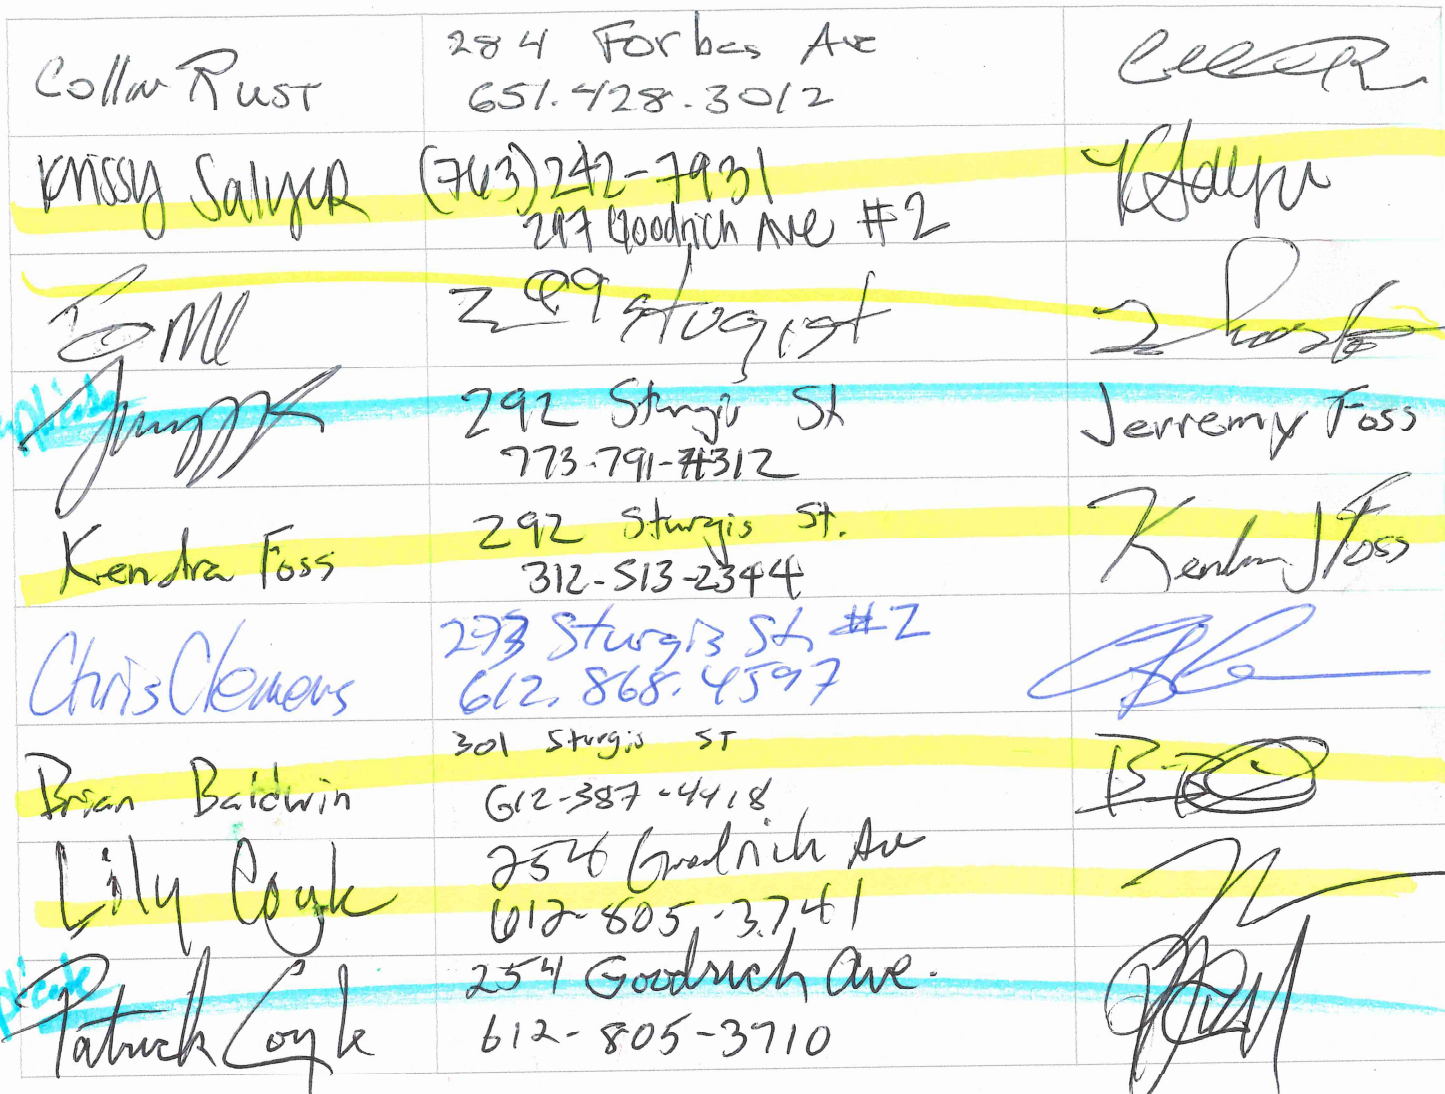 Collin Rust
284 Forbes Ave
651.428.3012
Krissy Salyer
(763)242-7931
297 Goodrich Ave #2
299 Stugist
292 Sturgis St
773-791-4312
Jerremy Foss
Kendra Foss
292 Sturgis St.
312-513-2344
Kendra J Foss
Chris Clemens
293 Sturgis St. #2
612.868.4597
Brian Baldwin
301 Sturgis ST
612-387-4418
Lily Coyle
254 Goodrich Ave
612-805-3741
Patrick Coyle
254 Goodrich Ave.
612-805-3710